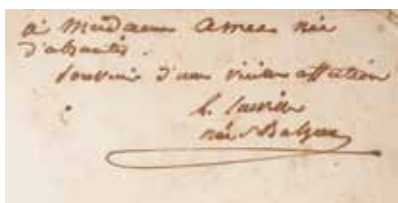 à Madame Amet née
d'abrantès.
Souvenir d'une vieille affection
L. Surville
née Balzac